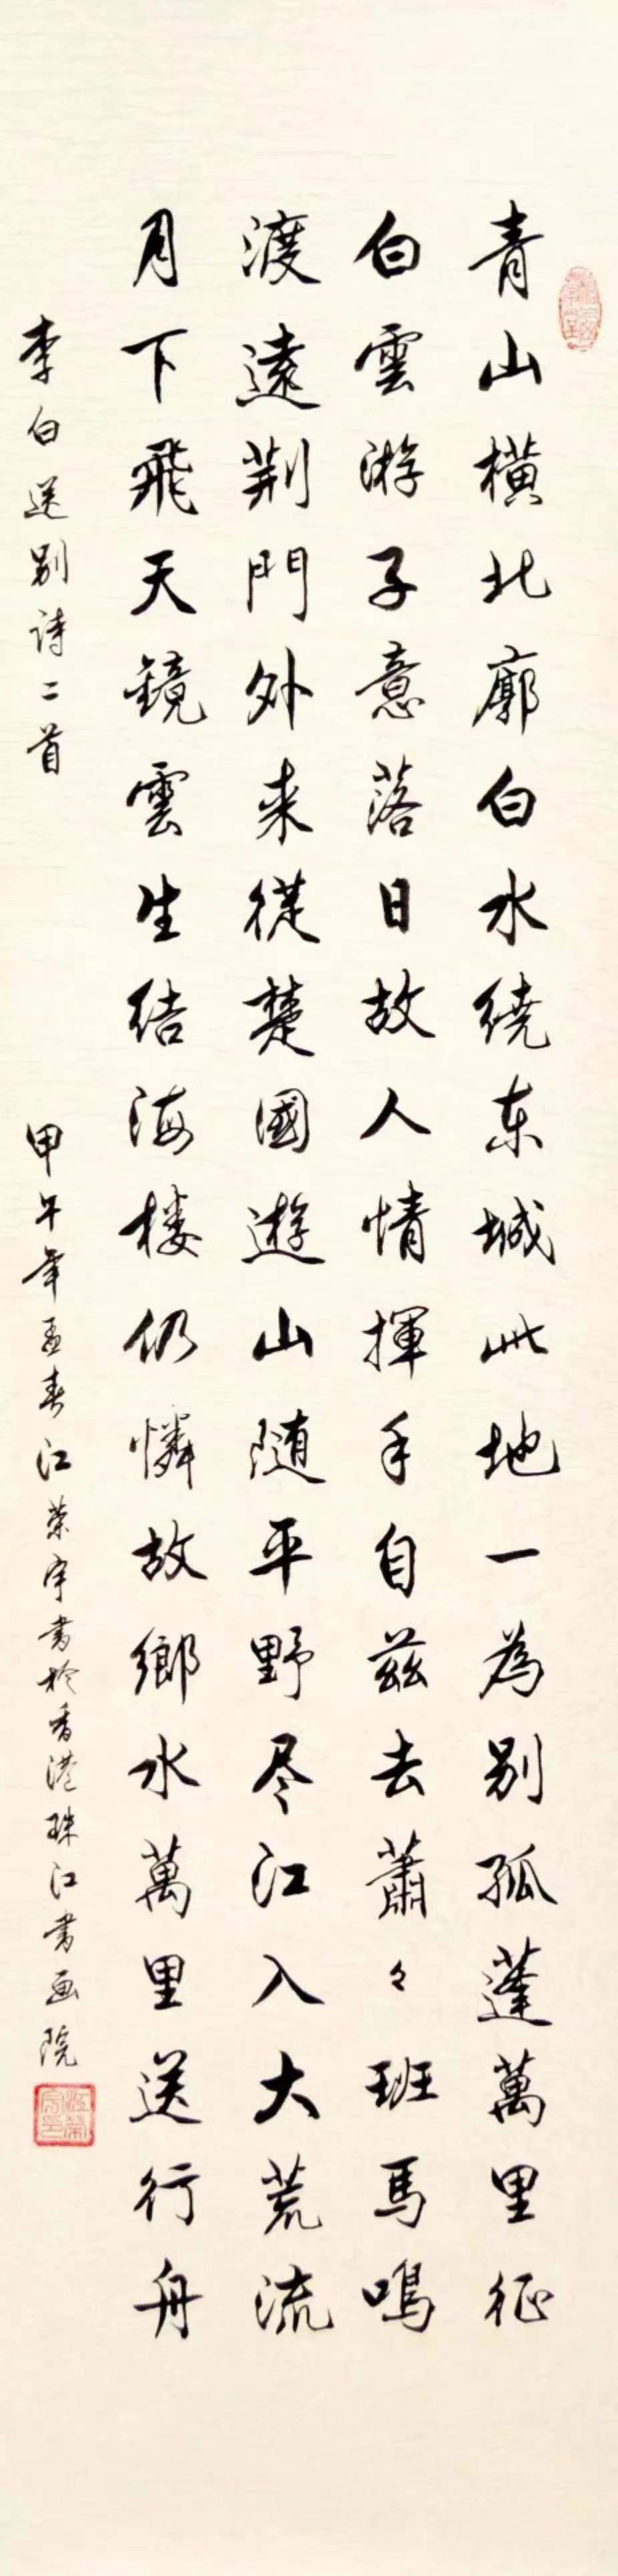 青山横北廓白水绕东城此地一為别孤蓬萬里征
白雲游子意落日故人情揮手自兹去蕭々班馬鳴
渡遠荆門外来從楚國遊山随平野尽江入大荒流
月下飛天鏡雲生结海楼仍憐故鄉水萬里送行舟
李白送别诗二首
甲午年孟春江荣宇書於香港珠江書画院